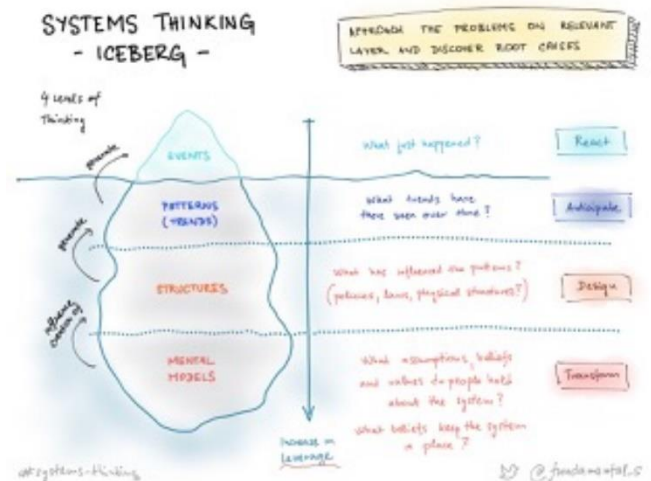 SYSTEMS THINKING
- ICEBERG -
APPROACH THE PROBLEMS ON RELEVANT
LAYER AND DISCOVER ROOT CAUSES
4 Levels of
Thinking
EVENTS
What just happened?
React
generate
PATTERNS
(TRENDS)
What trends have
there been over time?
Anticipate
generate
STRUCTURES
What has influenced the patterns?
(policies, laws, physical structures?)
Design
influence
creation of
MENTAL
MODELS
What assumptions, beliefs
and values do people hold
about the system?
What beliefs keep the system
in place?
Transform
Increase in
leverage
systems-thinking
@fundamental_s